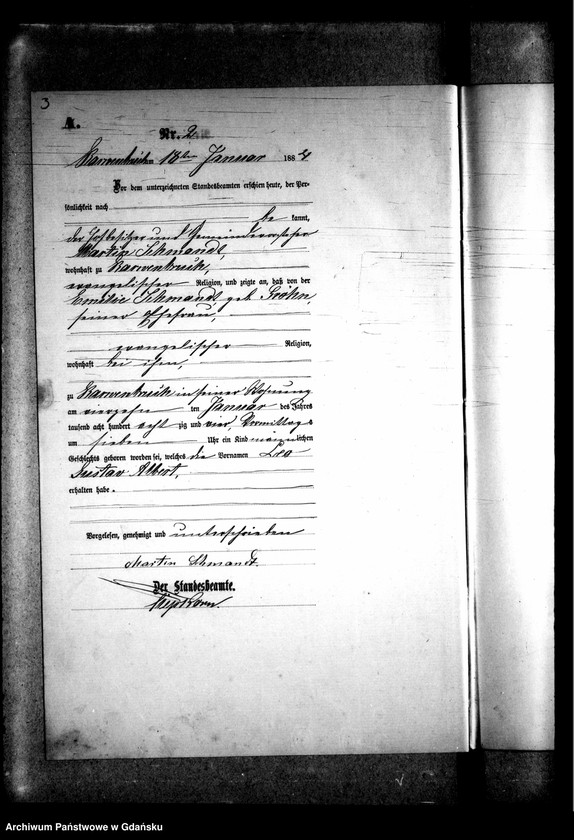 3
A.
Nr. 2
Karwenbruch am 18ten Januar 1884
Vor dem unterzeichneten Standesbeamten erschien heute, der Per-
sönlichkeit nach
be kannt,
der Hofbesitzer und Gemeindevorsteher
Martin Schmandt,
wohnhaft zu Karwenbruch,
evangelischer Religion, und zeigte an, daß von der
Emilie Schmandt geb. Gröhn,
seiner Ehefrau,
evangelischer Religion,
wohnhaft bei ihm,
zu Karwenbruch in seiner Wohnung
am vierzehn ten Januar des Jahres
tausend acht hundert acht zig und vier, Vormittags
um sieben Uhr ein Kind männlichen
Geschlechts geboren worden sei, welches die Vornamen Leo
Gustav Albert,
erhalten habe.
Vorgelesen, genehmigt und unterschrieben
Martin Schmandt.
Der Standesbeamte.
Archiwum Państwowe w Gdańsku